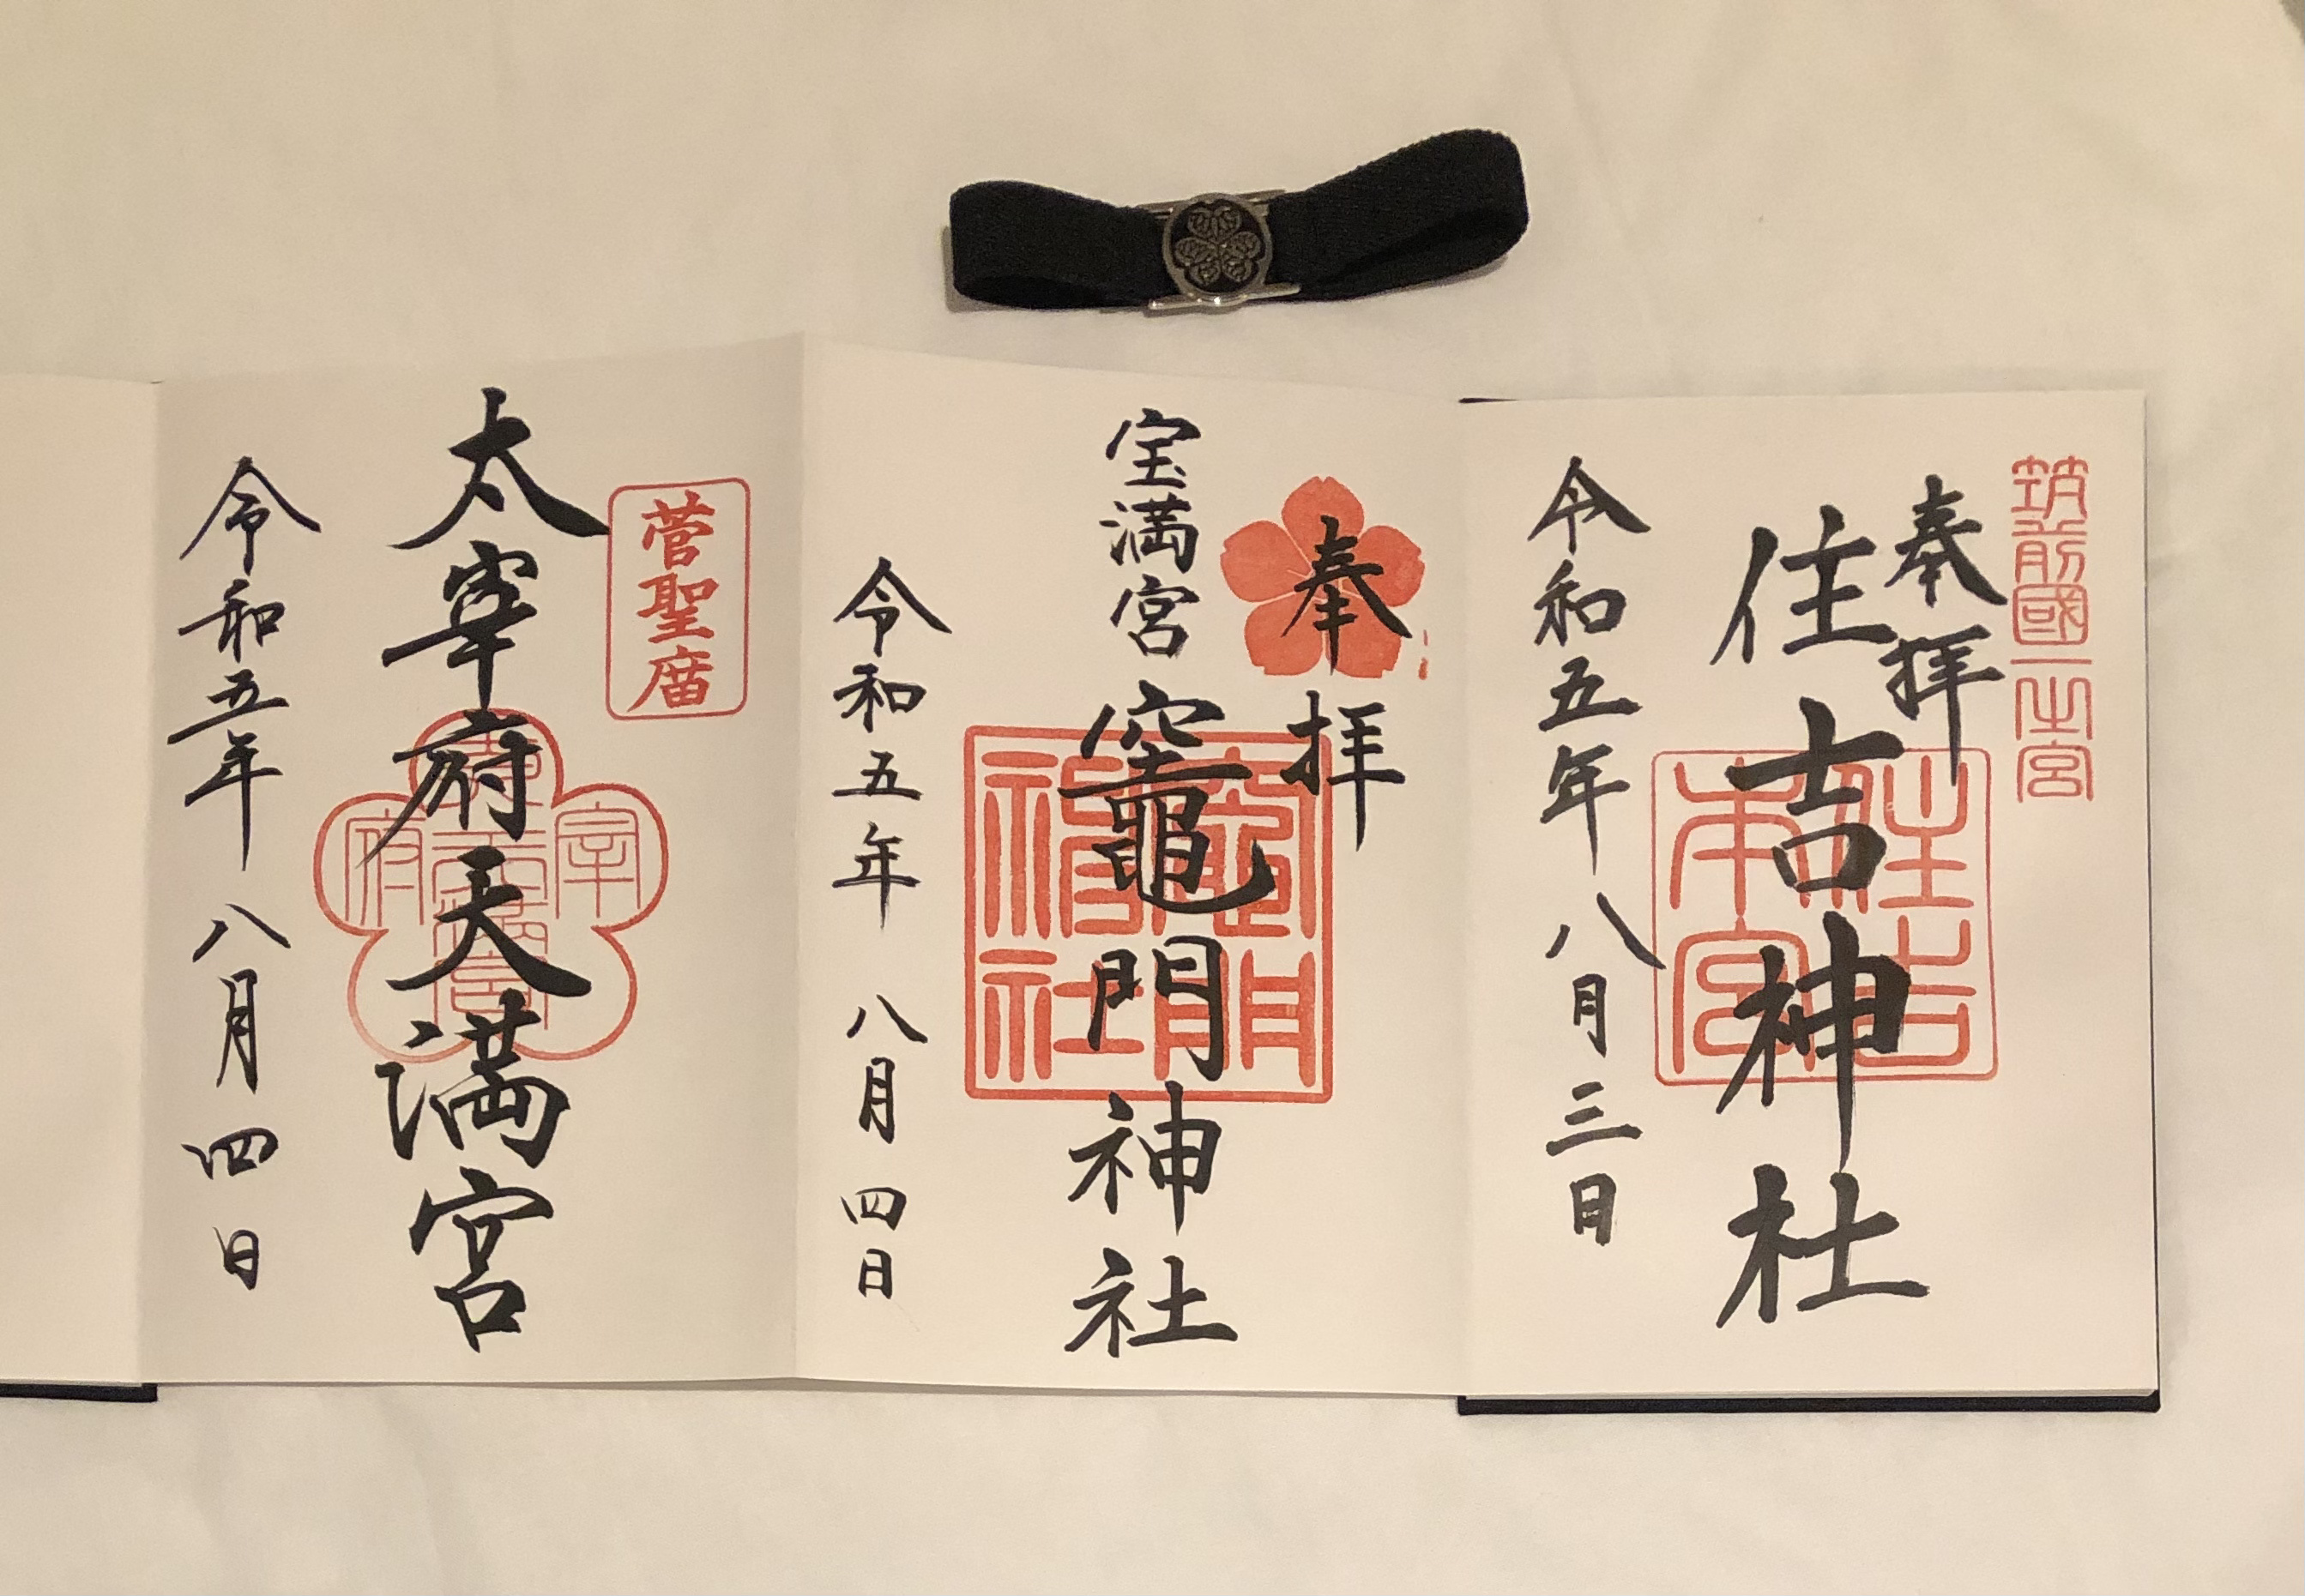 筑前國一之宮
奉拝
住吉神社
住吉
本宮
令和五年八月三日
奉拝
宝満宮
竈門神社
竈門
神社
令和五年八月四日
菅聖廟
太宰府天満宮
令和五年八月四日